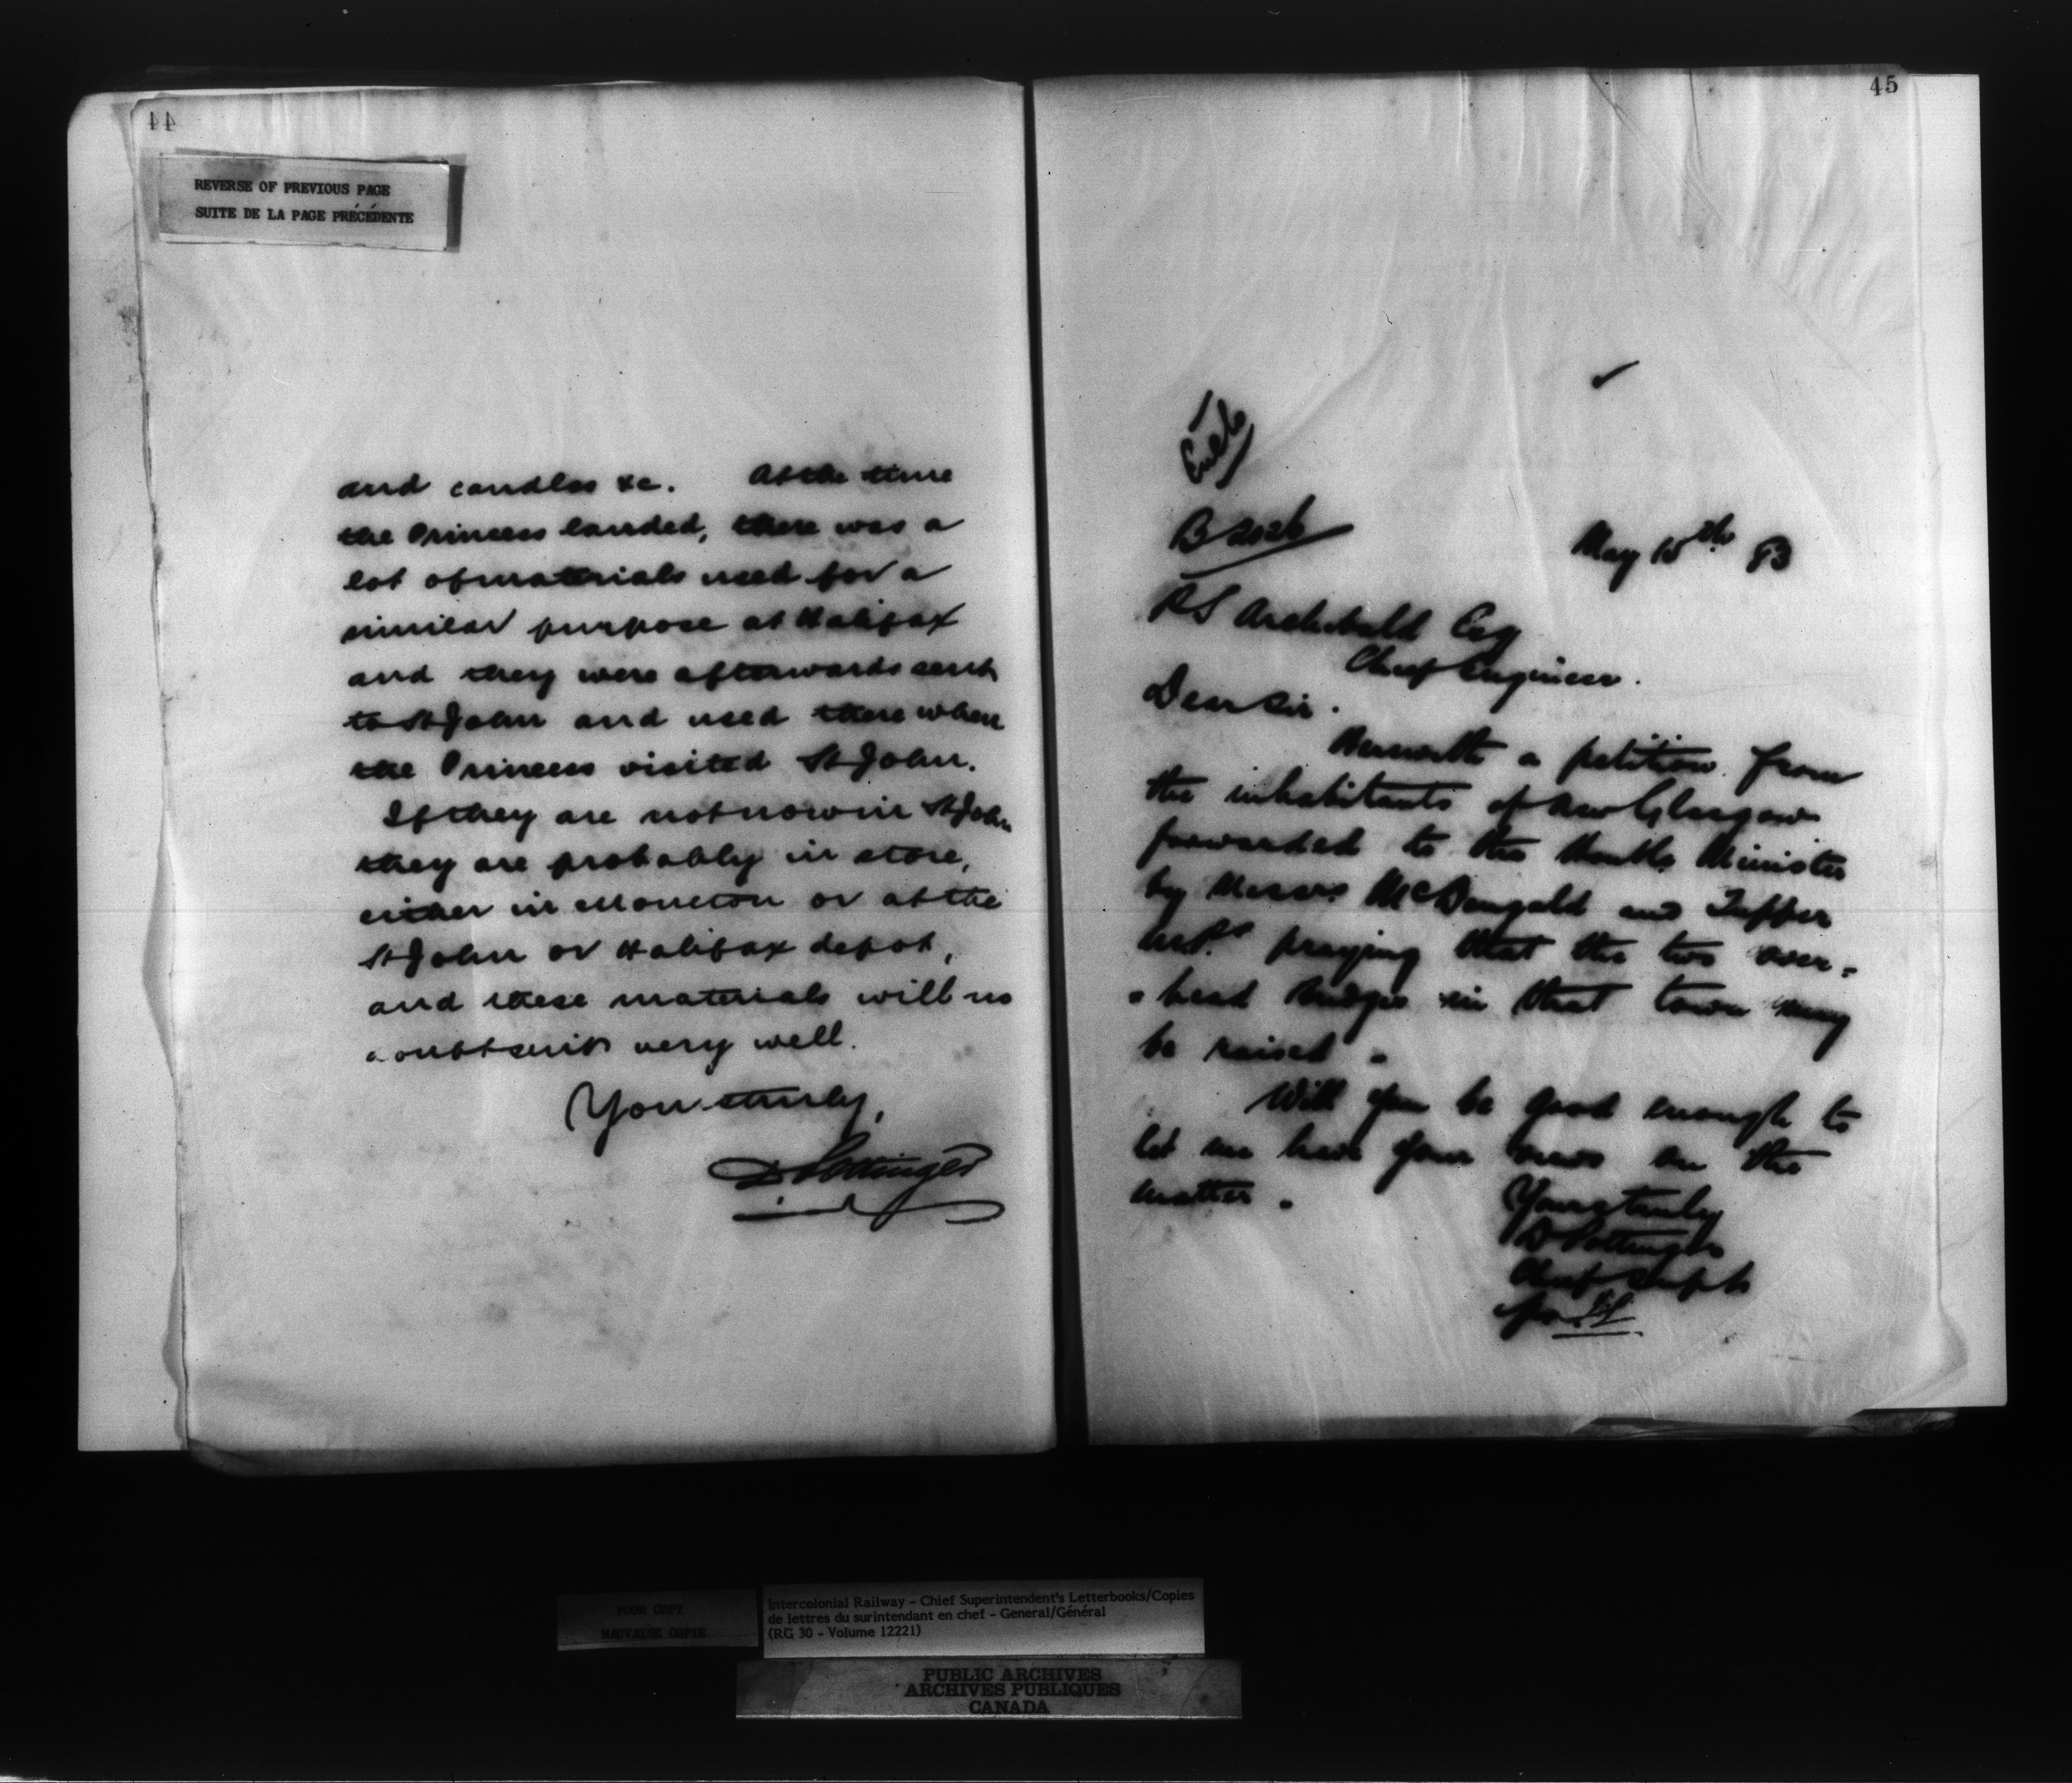 44
REVERSE OF PREVIOUS PAGE
SUITE DE LA PAGE PRÉCÉDENTE
and candles &c. At the time
the Princess landed, there was a
lot of materials used for a
similar purpose at Halifax
and they were afterwards sent
to St John and used there when
the Princess visited St John.
If they are not now in St John
they are probably in store,
either in Moncton or at the
St John or Halifax depot,
and these materials will no
doubt suit very well.
Yours truly,
D Pottinger
45
B 2026
May 15th 83
P S Archibald Esq
Chief Engineer.
Dear Sir.
Herewith a petition from
the inhabitants of New Glasgow
forwarded to the Honble Minister
by Messrs McDougald and Tupper
M.P.s praying that the two over-
-head bridges in that town may
be raised -
Will you be good enough to
let me have your views on the
matter.
Yours truly
D Pottinger
Chief Supt
for
POOR COPY
MAUVAISE COPIE
Intercolonial Railway - Chief Superintendent's Letterbooks/Copies
de lettres du surintendant en chef - General/Général
(RG 30 - Volume 12221)
PUBLIC ARCHIVES
ARCHIVES PUBLIQUES
CANADA